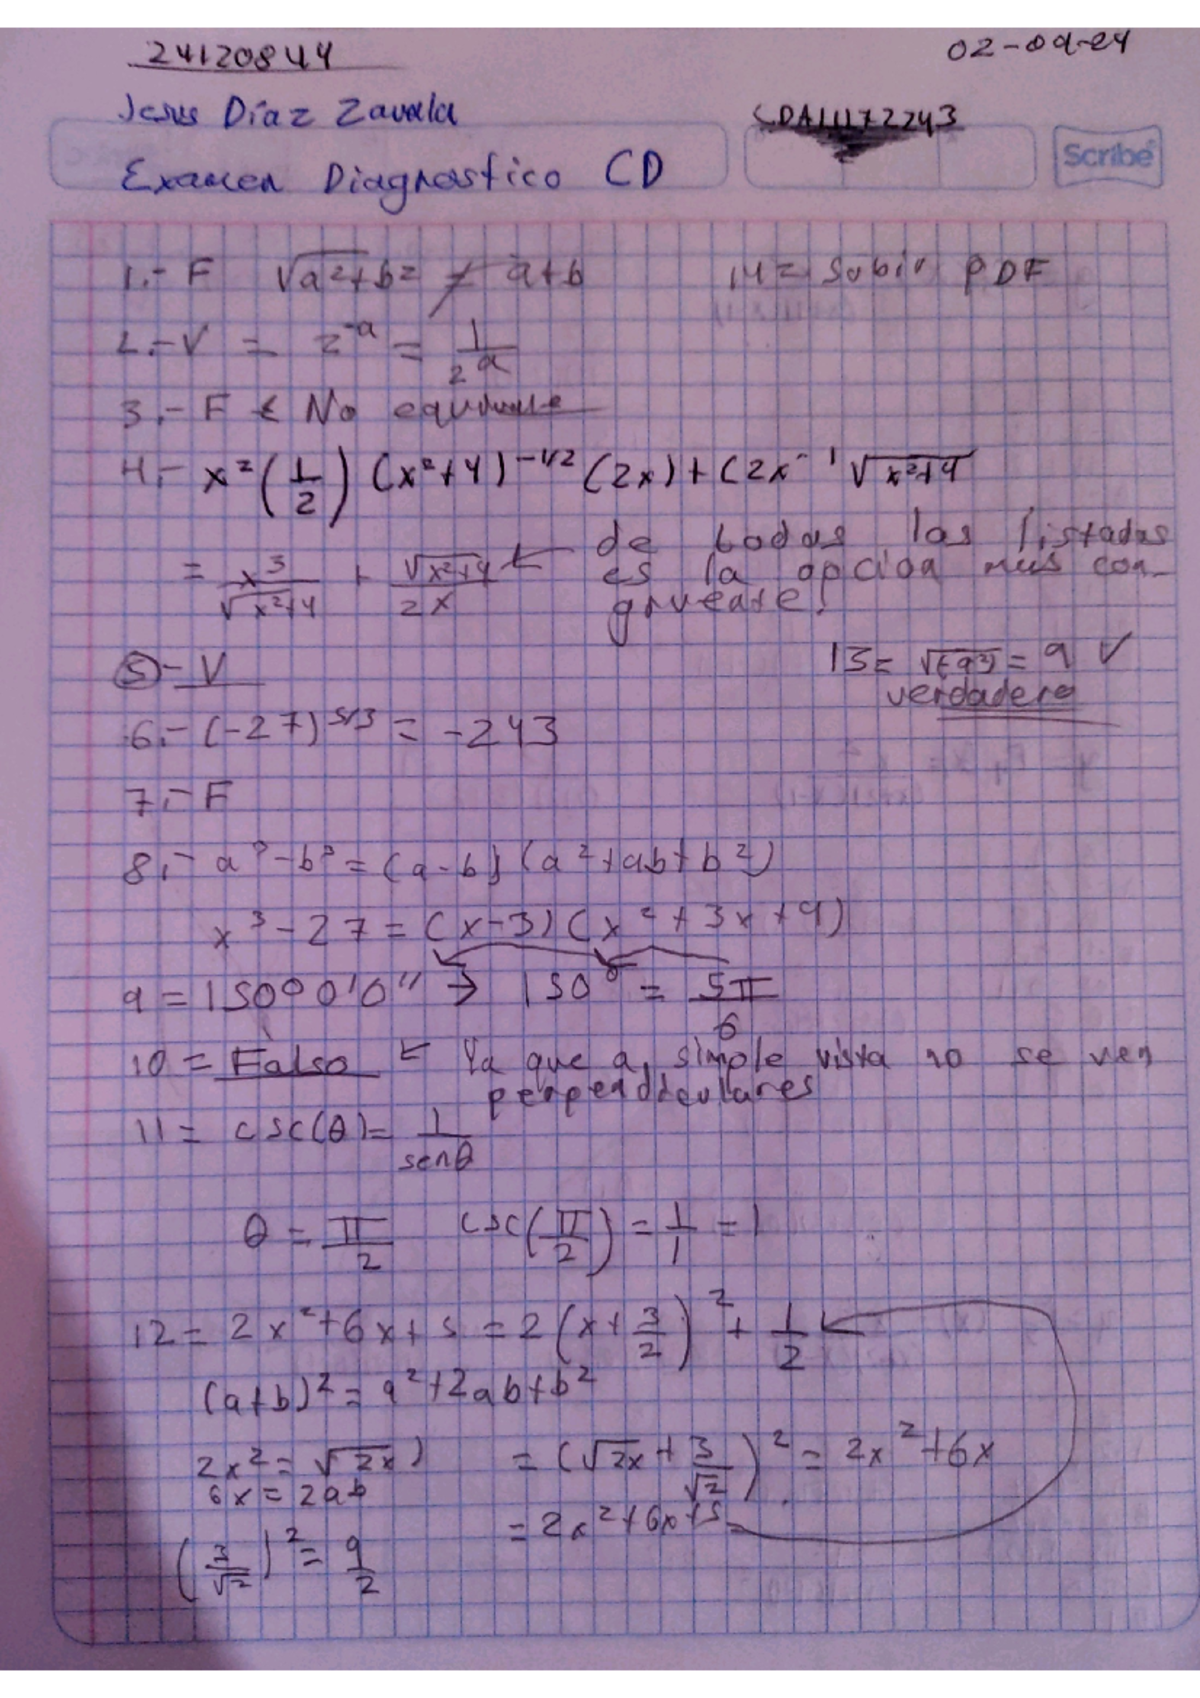 24120844 02-09-24
Jesus Díaz Zavala CDA11172243
Examen Diagnostico CD Scribe
1.- F √a²+b² ≠ a+b 14= Subir PDF
2.- V = 2^-a = 1/2^a
3.- F ← No equivale
4.- x² (1/2) (x²+4)^-1/2 (2x) + (2x^-1 √x²+4
= x³/√x²+4 + √x²+4/2x ← de todas las listadas
es la opcion mas con-
gruente.
5.- V 13= √(-a²) = a ✓
verdadero
6.- (-27)^5/3 = -243
7.- F
8.- a³-b³ = (a-b) (a²+ab+b²)
x³-27 = (x-3) (x²+3x+9)
9 = 150°0'0" → 150° = 5π/6
10 = Falso ← Ya que a simple vista no se ven
perpendiculares
11 = csc(θ) = 1/senθ
θ = π/2 csc(π/2) = 1/1 = 1
12 = 2x²+6x+5 = 2(x+3/2)² + 1/2 ←
(a+b)² = a²+2ab+b²
2x² = √2x) = (√2x + 3/√2)² = 2x²+6x
6x = 2ab
= 2x²+6x+5
(3/√2)² = 9/2